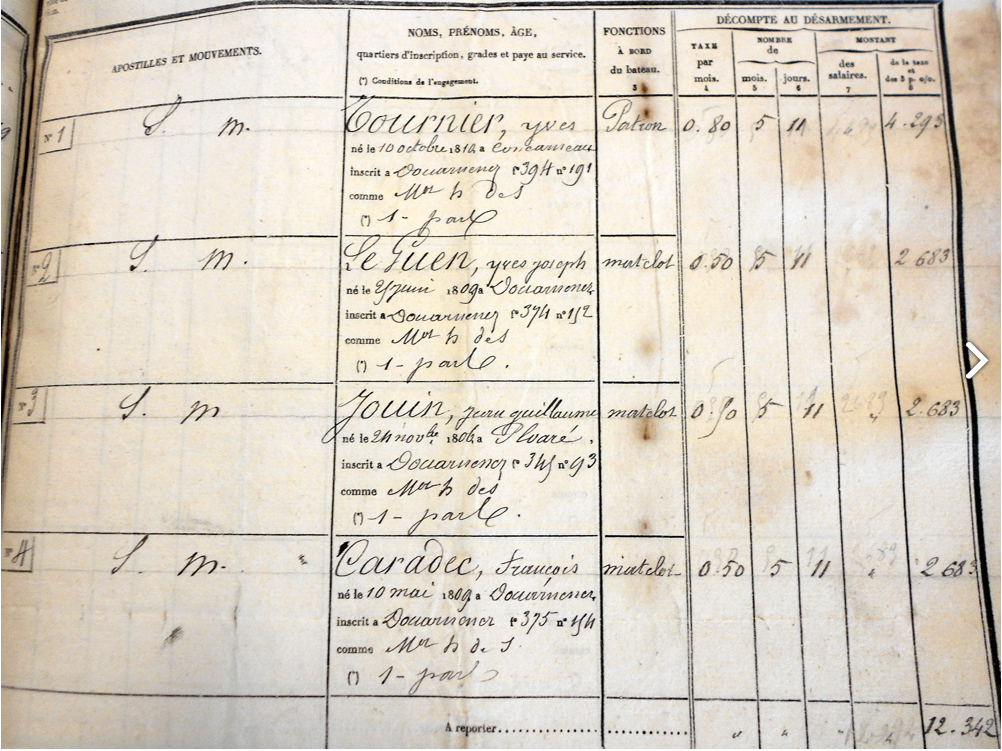 APOSTILLES ET MOUVEMENTS.
NOMS, PRÉNOMS, ÂGE,
quartiers d'inscription, grades et paye au service.
(*) Conditions de l'engagement.
FONCTIONS
À BORD
du bateau.
3
DÉCOMPTE AU DÉSARMEMENT.
TAXE
par
mois.
4
NOMBRE
de
mois.
5
jours.
6
MONTANT
des
salaires.
7
de la taxe
et
des 3 p. 0/0.
8
N° 1
S. m.
Tournier, yves
né le 10 octobre 1816 a Concarneau
inscrit a Douarnenez f° 394 n° 191
comme Mot h des
(*) 1 - part
Patron
0.80 5 11 4.293
N° 2
S. m.
Le Guen, yves joseph
né le juin 1809 a Douarnenez
inscrit a Douarnenez f° 374 n° 152
comme Mot h des
(*) 1 - part.
matelot
0.50 5 11 2 683
N° 3
S. m
Jouin, jean guillaume
né le 24 novbre 1806 a Ploaré.
inscrit a Douarnenez f° 345 n° 93
comme Mot h des
(*) 1 - part.
matelot
0.50 5 11 " 2.683
N° 4
S. m.
Caradec, François
né le 10 mai 1809 a Douarnenez
inscrit a Douarnenez f° 375 n° 154
comme Mot h de S
(*) 1 - part
matelot
0.50 5 11 " 2 683
A reporter " " 12.342